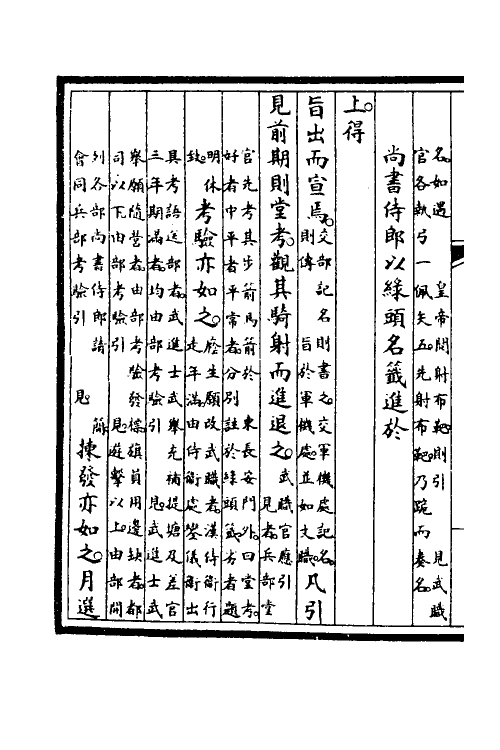 名。如遇 皇帝閱射布靶。則引 見武職
官各執弓一佩矢五。先射布靶。乃跪而奏名。
尚書侍郎以綠頭名籤進於
上。得
旨出而宣焉。交部記名則書之。交軍機處記名。
則傳 旨於軍機處。並如文職。凡引
見前期則堂考。觀其騎射而進退之。武職官應引
見者。兵部堂
官先考其步箭馬箭於 東長安門外。曰堂考。
好者中平者平常者。分別註於綠頭籤。劣者題
明休
致。考驗亦如之。廕生願改武職者。漢侍衛行
走年滿由侍衛處鑾儀衛出
具考語送部者。武進士武舉充補提塘及差官
三年期滿者。均由部考驗引 見。武進士武
舉願隨營者。由部考驗發標。旗員用邊缺者。都
司以下由部考驗引 見。遊擊以上。由部開
列各部尚書侍郎請 簡
會同兵部考驗引 見 揀發亦如之。月選